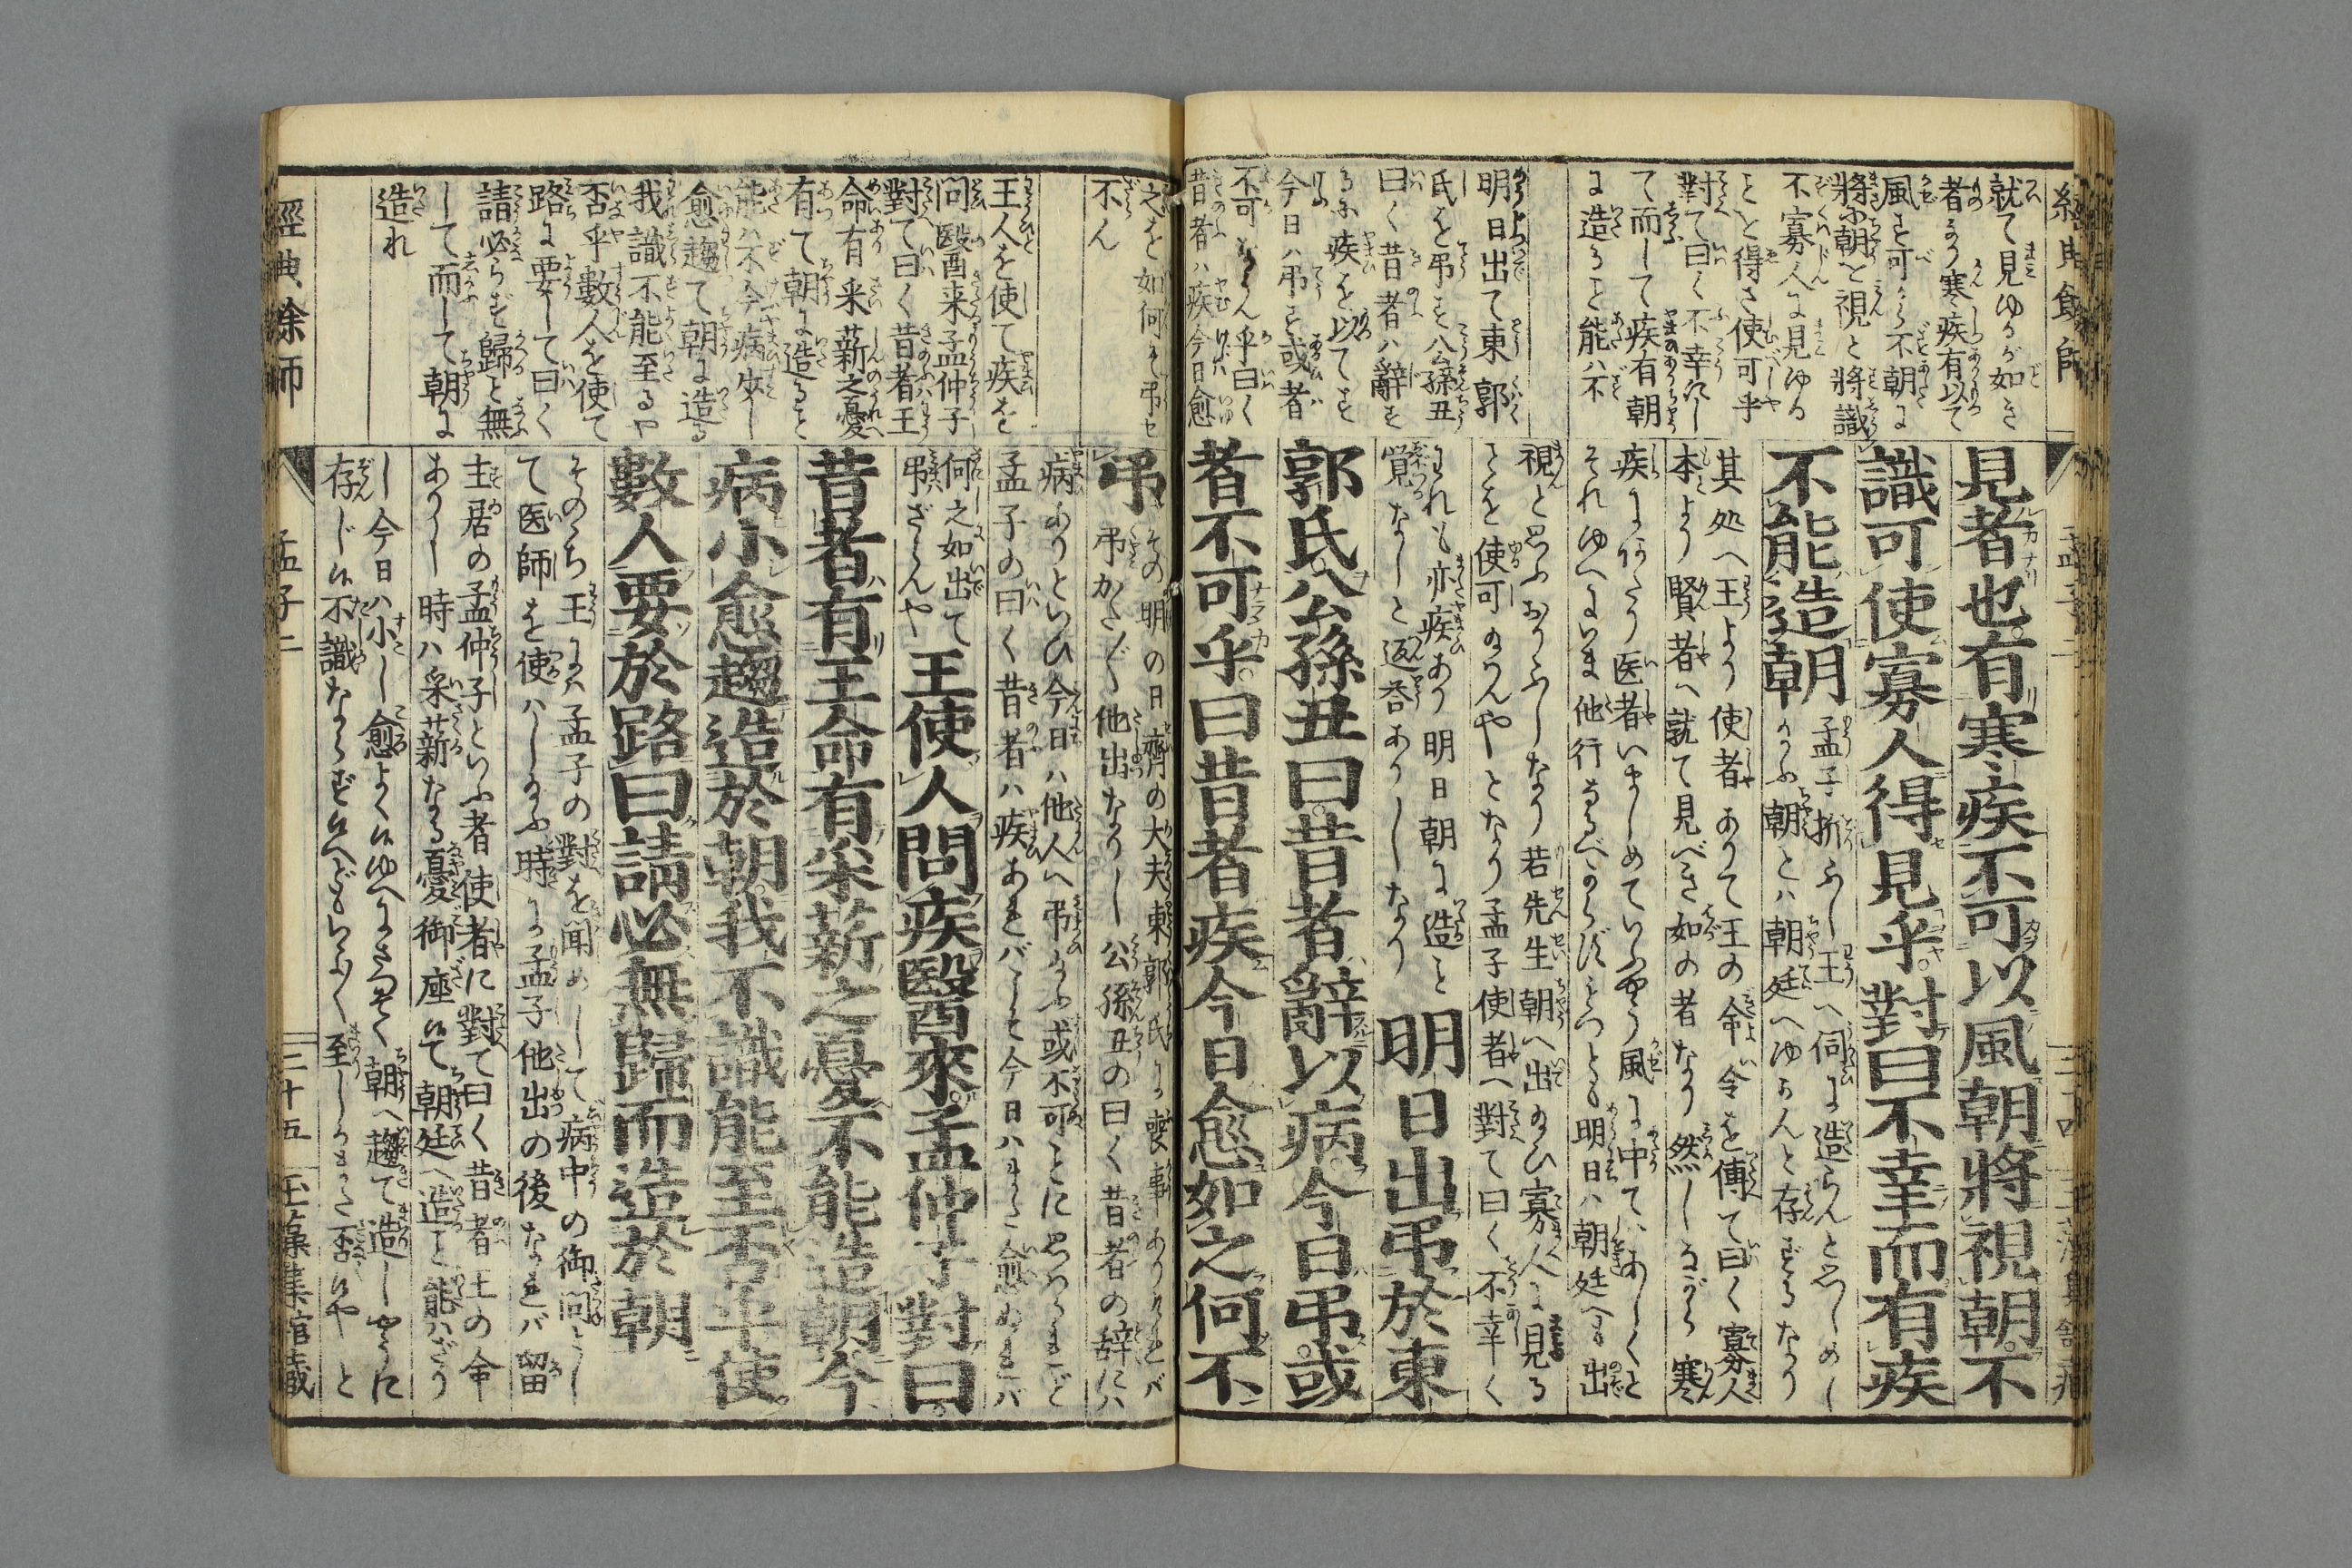 經典餘師
就て見ゆるが如き
者なり寒疾有以て
風す可から不朝に
將に朝を視と將識
不寡人に見ゆる
ことを得さ使可乎
對て曰く不幸にし
て而して疾有朝
に造ること能ハ不
明日出て東郭
氏を弔す公孫丑
曰く昔者ハ辭す
るに疾を以てす
今日ハ弔す或者
不可ならん乎曰く
昔者ハ疾今日愈
見者也有寒疾不可以風朝將視朝不
識可使寡人得見乎對曰不幸而有疾
不能造朝
孟子折ふし王へ伺に造らんと思しめし
給ふ朝とハ朝廷へゆかんと存ずるなり
其処へ王より使者ありて王の命令を傳て曰く寡人
本より賢者へ就て見べき如の者なり然しながら寒
それゆへにいま他行するべからずもつとも明日ハ朝廷へも出
視と思ふおりふしなり若先生朝へ出給ひ寡人に見る
ことを使可給んやとなり孟子使者へ對て曰く不幸く
われも亦疾あり明日朝に造こと
覚なしと返答ありしなり
明日出弔於東
郭氏公孫丑曰昔者辭以病今日弔或
者不可乎曰昔者疾今日愈如之何不
之を如何そ弔せ
不ん
王人を使て疾を
問醫来孟仲子
對て曰く昔者王
命有采薪之憂
有て朝に造ること
能ハ不今病少し
愈趨て朝に造る
我識不能至るや
否乎數人を使て
路に要して曰く
請必らず歸と無
して而して朝に
造れ
弔
その明の日齊の大夫東郭氏に喪事ありけれバ
弔かた〴〵他出なりし公孫丑の曰く昔者の辞にハ
病ありといひ今日ハ他人へ弔給ふ或不可ことに思ハるまじきや
孟子の曰く昔者ハ疾あれバこそ今日ハもはや愈ぬれバ
何之如出て
弔ざらんや
王使人問疾醫來孟仲子對曰
昔者有王命有采薪之憂不能造朝今
病小愈趨造於朝我不識能至否乎使
數人要於路曰請必無歸而造於朝
そのゝち王にハ孟子の對を聞めして病中の御問とし
て医師を使ハし給ふ時に孟子他出の後なれバ留
主居の孟仲子といふ者使者に對て曰く昔者王の命
ありし時ハ采薪なる憂御座候て朝廷へ造こと能ハざり
し今日ハ小し愈よく候ゆへにさつそく朝へ趨て造し
存じ候不識ならず候へども
經典餘師
孟子二
三十五
玉藻集舘藏